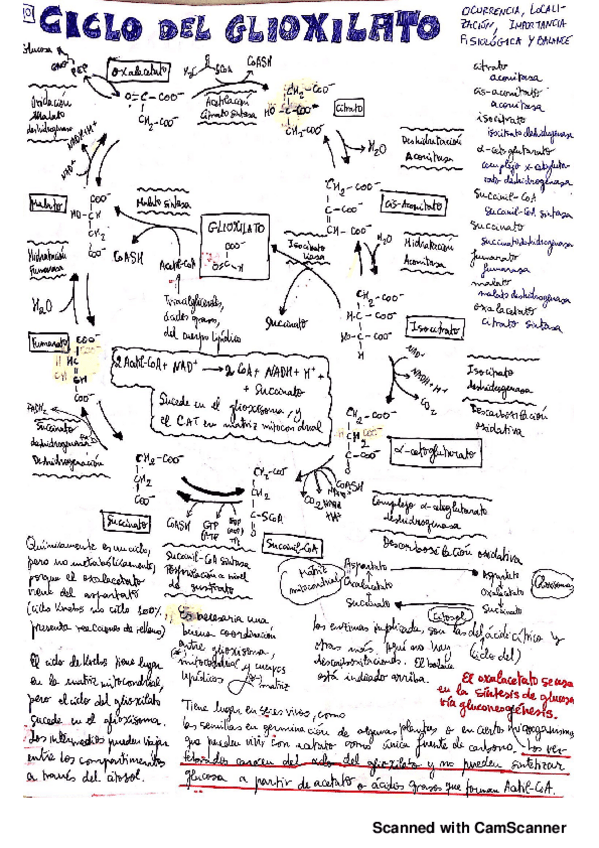 CICLO DEL GLIOXILATO
OCURRENCIA, LOCALI-
ZACIÓN, IMPORTANCIA
FISIOLÓGICA Y BALANCE
citrato
aconitasa
cis-aconitato
aconitasa
isocitrato
isocitrato deshidrogenasa
α-cetoglutarato
complejo α-cetogluta-
rato deshidrogenasa
Succinil-CoA
Succinil-CoA sintasa
Succinato
succinato deshidrogenasa
fumarato
fumarasa
malato
malato deshidrogenasa
oxalacetato
citrato sintasa
Glucosa
PEP
oxalacetato
CoASH
O=C-COO⁻
CH₂-COO⁻
Oxidación
Malato
deshidrogenasa
NADH+H⁺
NAD⁺
Acetilación
Citrato sintasa
CH₂-COO⁻
HO-C-COO⁻
CH₂-COO⁻
Citrato
H₂O
Deshidratación
Aconitasa
CH₂-COO⁻
C-COO⁻
CH-COO⁻
cis-Aconitato
H₂O
Hidratación
Aconitasa
CH₂-COO⁻
H-C-COO⁻
HO-C-H
COO⁻
Isocitrato
NAD⁺
NADH+H⁺
CO₂
Isocitrato
deshidrogenasa
Descarboxilación
oxidativa
Malato
COO⁻
HO-CH
CH₂
COO⁻
Malato sintasa
GLIOXILATO
COO⁻
CoASH
Acetil-CoA
Isocitrato
liasa
Succinato
Triacilglicéridos,
ácidos grasos,
del cuerpo lipídico
Hidratación
Fumarasa
H₂O
Fumarato
COO⁻
HC
CH
COO⁻
2 Acetil-CoA + NAD⁺ → 2 CoA + NADH + H⁺ +
+ Succinato
Sucede en el glioxisoma, y
el CAT en matriz mitocondrial
FADH₂
Succinato
deshidrogenasa
Deshidrogenación
CH₂-COO⁻
CH₂
COO⁻
Succinato
CoASH
GTP
CH₂-COO⁻
CH₂
C-SCoA
Succinil-CoA
Succinil-CoA sintasa
Fosforilación a nivel
de sustrato
CH₂-COO⁻
COO⁻
α-cetoglutarato
CoASH
CO₂
Complejo α-cetoglutarato
deshidrogenasa
Descarboxilación oxidativa
Matriz
mitocondrial
Aspartato
Oxalacetato
Succinato
Aspartato
Oxalacetato
Succinato
Glioxisoma
Citosol
Químicamente es un ciclo,
pero no metabólicamente,
porque el oxalacetato
viene del aspartato
(ciclo Krebs no ciclo 100%,
presenta reacciones de relleno)
El ciclo de Krebs tiene lugar
en la matriz mitocondrial,
pero el ciclo del glioxilato
sucede en el glioxisoma.
Los intermedios pueden viajar
entre los compartimentos
a través del citosol.
Es necesaria una
buena coordinación
entre glioxisoma,
mitocondrial y cuerpos
lipídicos
matriz
Las enzimas implicadas son las del ácido cítrico y
otras más. Aquí no hay
(ciclo del)
descarboxilaciones. El balance
está indicado arriba.
El oxalacetato se usa
en la síntesis de glucosa
vía gluconeogénesis.
Tiene lugar en seres vivos, como
las semillas en germinación de algunas plantas o en ciertos microorganismos
que pueden vivir con acetato como única fuente de carbono. Los ver-
tebrados carecen del ciclo del glioxilato y no pueden sintetizar
glucosa a partir de acetato o ácidos grasos que forman Acetil-CoA.
Scanned with CamScanner